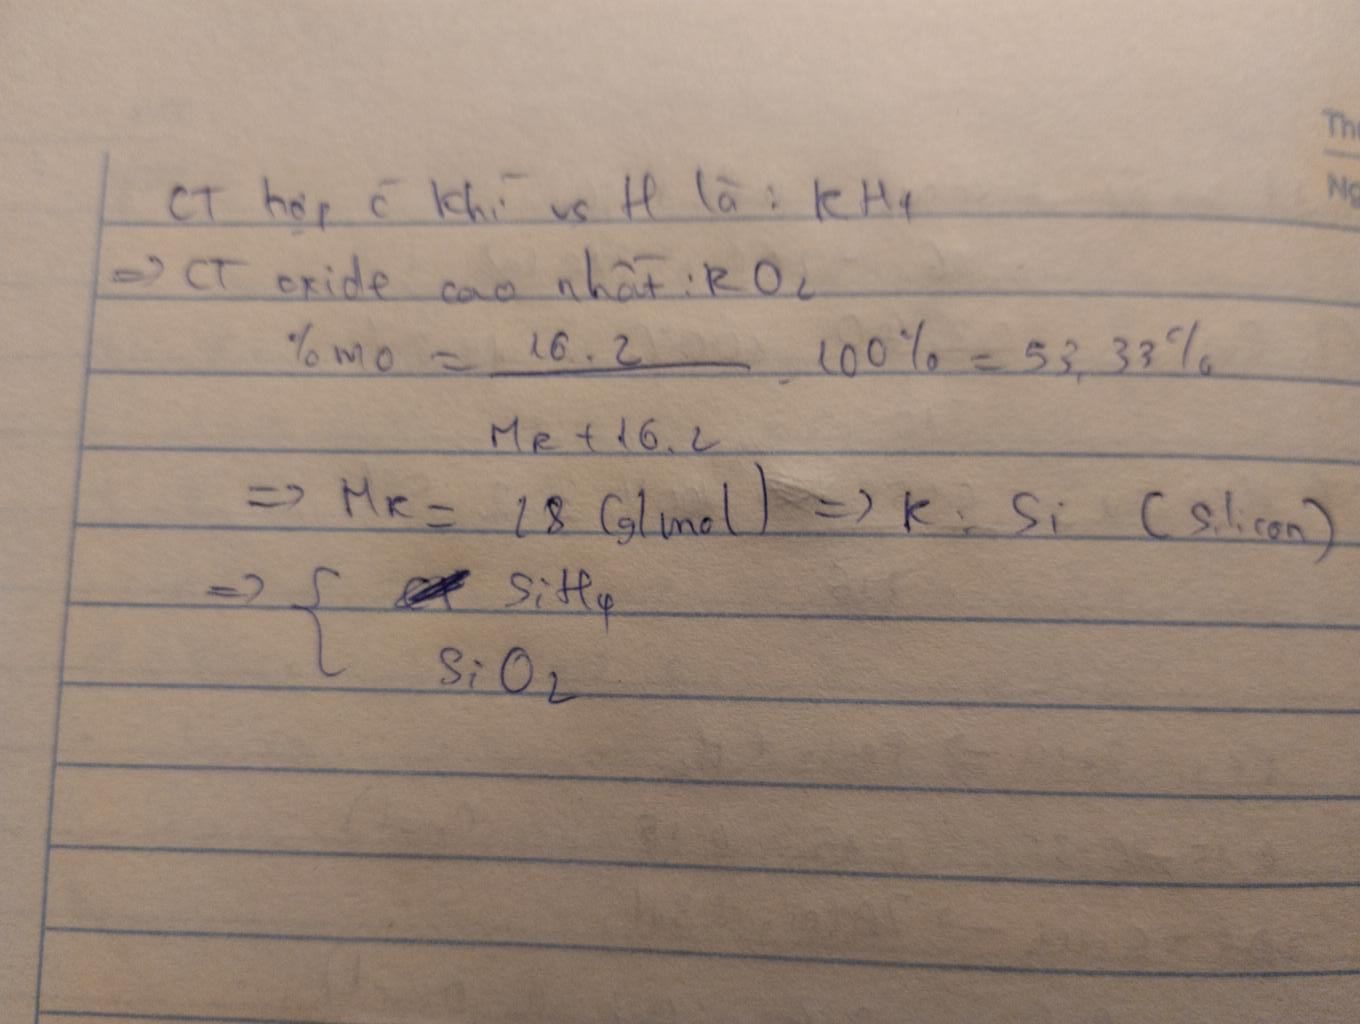 The
Ng
CT hợp c̄ khí vs H là: RH₄
=> CT oxide cao nhất: RO₂
%mO = 16.2 / MR + 16.2 . 100% = 53,33%
=> MR = 28 (g/mol) => R: Si (Silicon)
=> { SiH₄
SiO₂